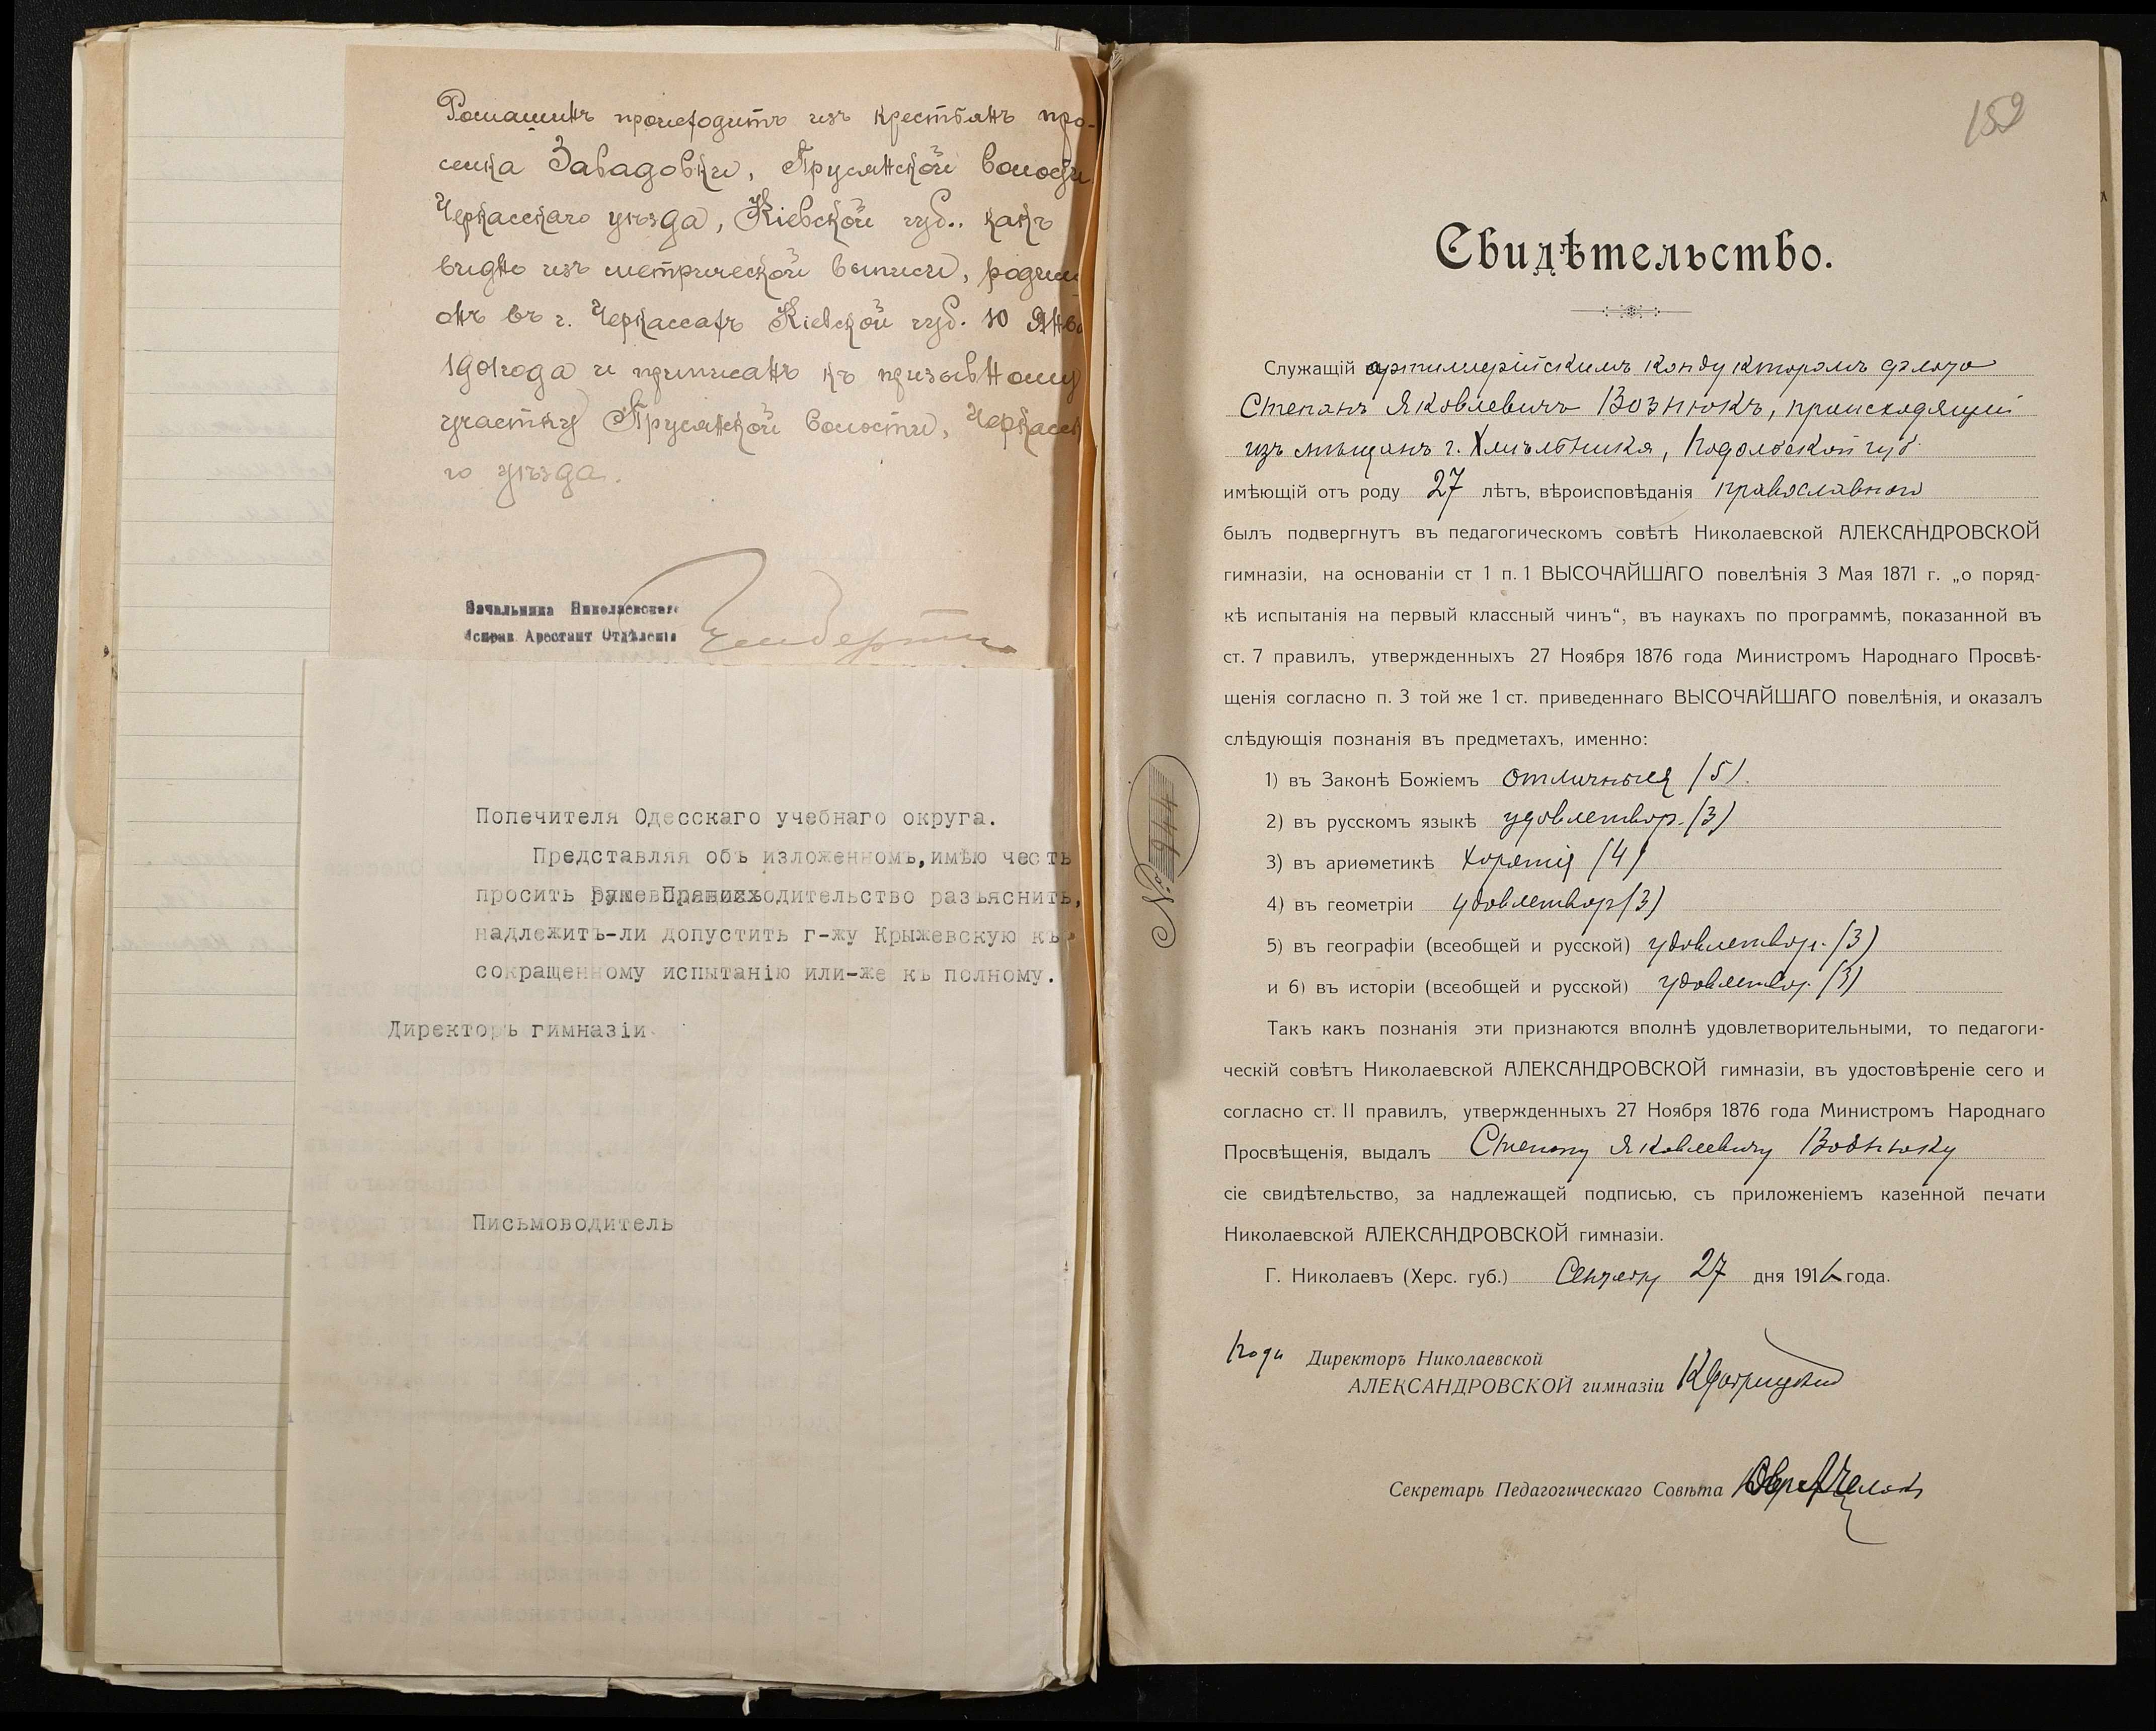 Ромашинъ происходитъ изъ крестьянъ про-
селка Завадовки, Прусянской волости
Черкасскаго уѣзда, Кіевской губ., какъ
видно изъ метрической выписи, родил
онъ въ г. Черкассахъ Кіевской губ. 10 Янва
1901 года и приписанъ къ призывному
участку Прусянской волости, Черкасск
го уѣзда.
Начальника Николаевскаго
Исправ. Арестант Отдѣленія
Попечителя Одесскаго учебнаго округа.
Представляя объ изложенномъ, имѣю честь
просить Ваше Превосходительство разъяснить,
надлежитъ-ли допустить г-жу Крыжевскую къ
сокращенному испытанію или-же къ полному.
Директоръ гимназіи
Письмоводитель
152
№ 944
Свидѣтельство.
Служащій артиллерійскимъ кондукторомъ флота
Степанъ Яковлевичъ Вознюкъ, происходящій
изъ мѣщанъ г. Хмѣльника, Подольской губ.
имѣющій отъ роду 27 лѣтъ, вѣроисповѣданія православнаго
былъ подвергнутъ въ педагогическомъ совѣтѣ Николаевской АЛЕКСАНДРОВСКОЙ
гимназіи, на основаніи ст 1 п. 1 ВЫСОЧАЙШАГО повелѣнія 3 Мая 1871 г. „о поряд-
кѣ испытанія на первый классный чинъ“, въ наукахъ по программѣ, показанной въ
ст. 7 правилъ, утвержденныхъ 27 Ноября 1876 года Министромъ Народнаго Просвѣ-
щенія согласно п. 3 той же 1 ст. приведеннаго ВЫСОЧАЙШАГО повелѣнія, и оказалъ
слѣдующія познанія въ предметахъ, именно:
1) въ Законѣ Божіемъ отличныя (5).
2) въ русскомъ языкѣ удовлетвор. (3)
3) въ ариѳметикѣ хорошія (4)
4) въ геометріи удовлетвор (3)
5) въ географіи (всеобщей и русской) удовлетвор. (3)
и 6) въ исторіи (всеобщей и русской) удовлетвор. (3)
Такъ какъ познанія эти признаются вполнѣ удовлетворительными, то педагоги-
ческій совѣтъ Николаевской АЛЕКСАНДРОВСКОЙ гимназіи, въ удостовѣреніе сего и
согласно ст. II правилъ, утвержденныхъ 27 Ноября 1876 года Министромъ Народнаго
Просвѣщенія, выдалъ Степану Яковлевичу Вознюку
сіе свидѣтельство, за надлежащей подписью, съ приложеніемъ казенной печати
Николаевской АЛЕКСАНДРОВСКОЙ гимназіи.
Г. Николаевъ (Херс. губ.) 27 дня 1916 года.
Директоръ Николаевской
АЛЕКСАНДРОВСКОЙ гимназіи
Секретарь Педагогическаго Совѣта